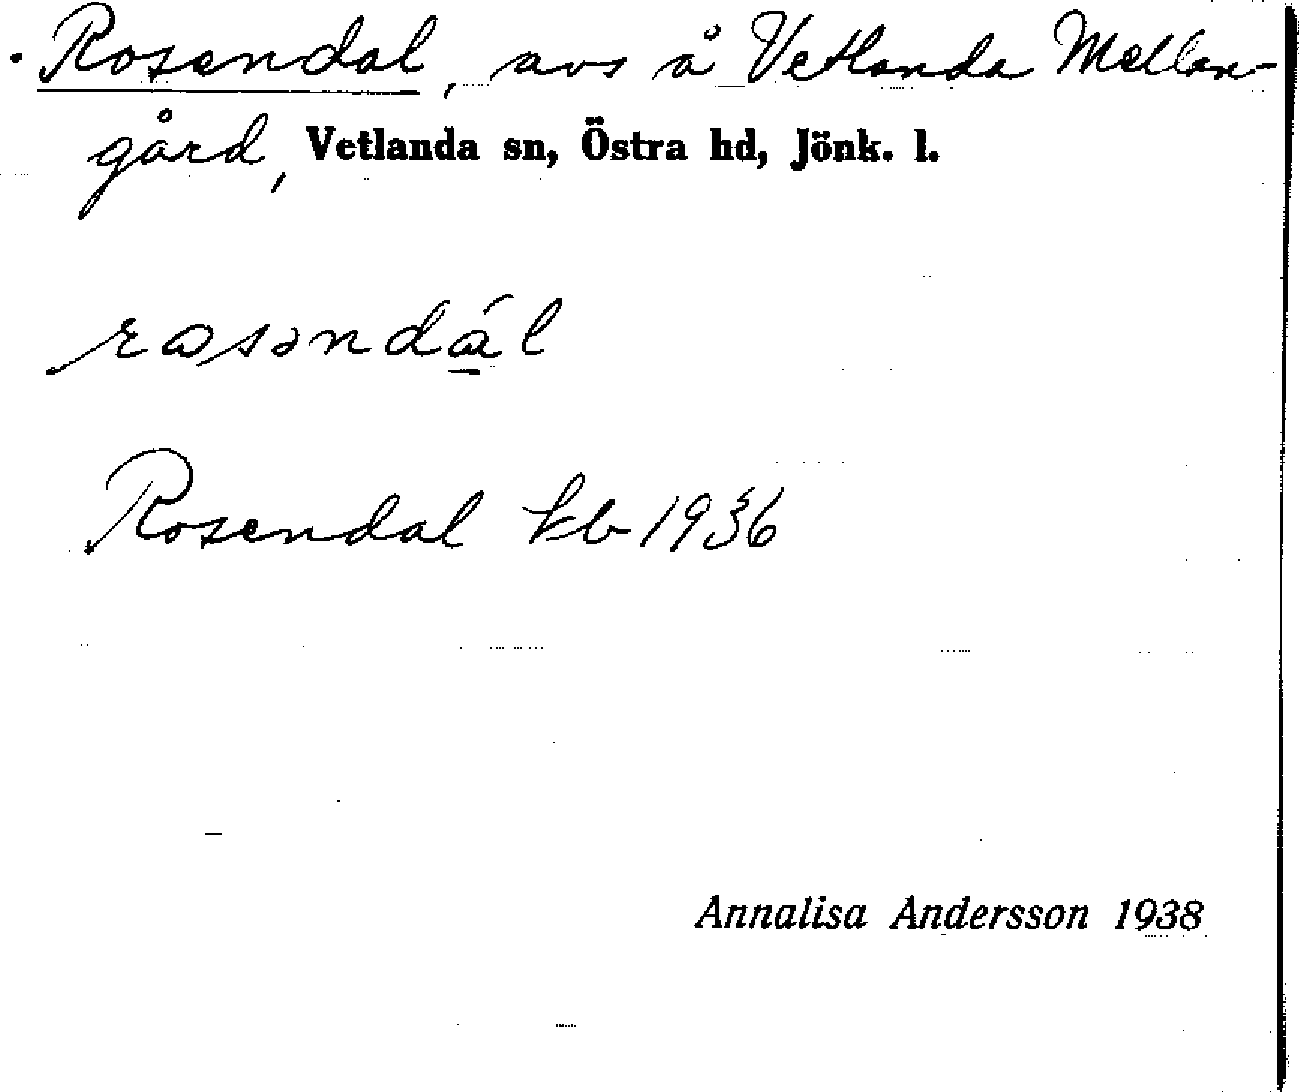 Rosendal, avs å Vetlanda Mellan-
gård, Vetlanda sn, Östra hd, Jönk. l.
rosəndál
Rosendal kb 1936
Annalisa Andersson 1938